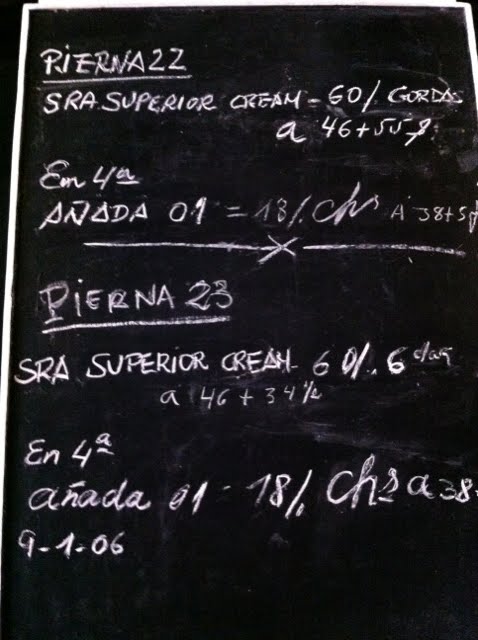 PIERNA 22
SRA. SUPERIOR CREAM - 60/ GORDAS
a 46+55
En 4ª
AÑADA 01 = 18/. chs A 38+5
PIERNA 23
SRA SUPERIOR CREAM - 60/. Gdas
a 46 + 34½
En 4ª
añada 01 - 18/. chs a 38
9-1-06